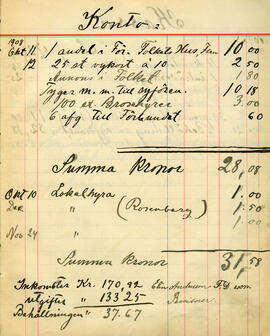 Konto:
1908
Okt. 11 1 andel i För. Folkets Hus, 10 00
12 25 st vykort á 10 2 50
Annons i Folket 1 80
Tyger m. m. till syföreni. 10 18
100 ex. Broschyrer 3.00
6 afg. till Förbundet 60
Summa kronor 28,08
Okt 10 Lokalhyra 1 00
Dec " (Rosenberg) 1.50
Nov 24 " 1.
Summa kronor 31,58
Inkomster Kr. 170,92
utgifter " 133 25
Behållningen " 37.67